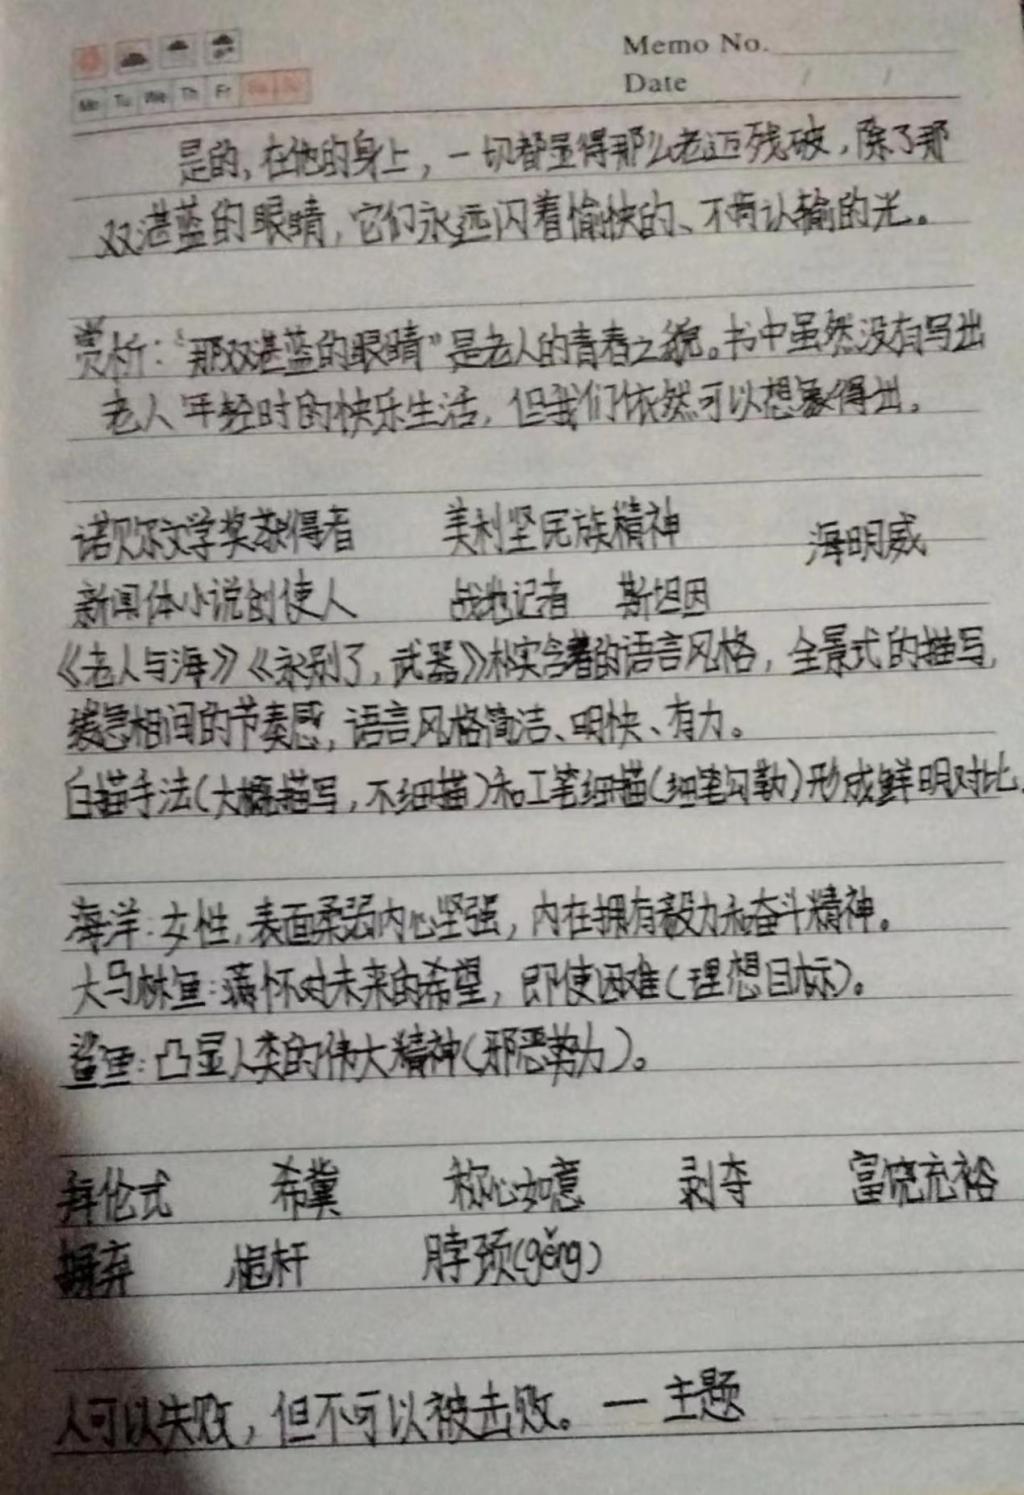 Memo No.
Mo Tu We Th Fr Sa Su
Date / /
是的，在他的身上，一切都显得那么老迈残破，除了那
双湛蓝的眼睛，它们永远闪着愉快的、不肯认输的光。
赏析："那双湛蓝的眼睛"是老人的青春之貌。书中虽然没有写出
老人年轻时的快乐生活，但我们依然可以想象得出。
诺贝尔文学奖获得者 美利坚民族精神 海明威
新闻体小说创使人 战地记者 斯坦因
《老人与海》《永别了，武器》朴实含蓄的语言风格，全景式的描写，
缓急相间的节奏感，语言风格简洁、明快、有力。
白描手法(大概描写，不细描)和工笔细描(细笔勾勒)形成鲜明对比.
海洋：女性，表面柔弱内心坚强，内在拥有毅力和奋斗精神。
大马林鱼：满怀对未来的希望，即使困难(理想目标)。
鲨鱼：凸显人类的伟大精神(邪恶势力)。
拜伦式 希冀 称心如意 剥夺 富饶充裕
摒弃 桅杆 脖颈(gěng)
人可以失败，但不可以被击败。一主题